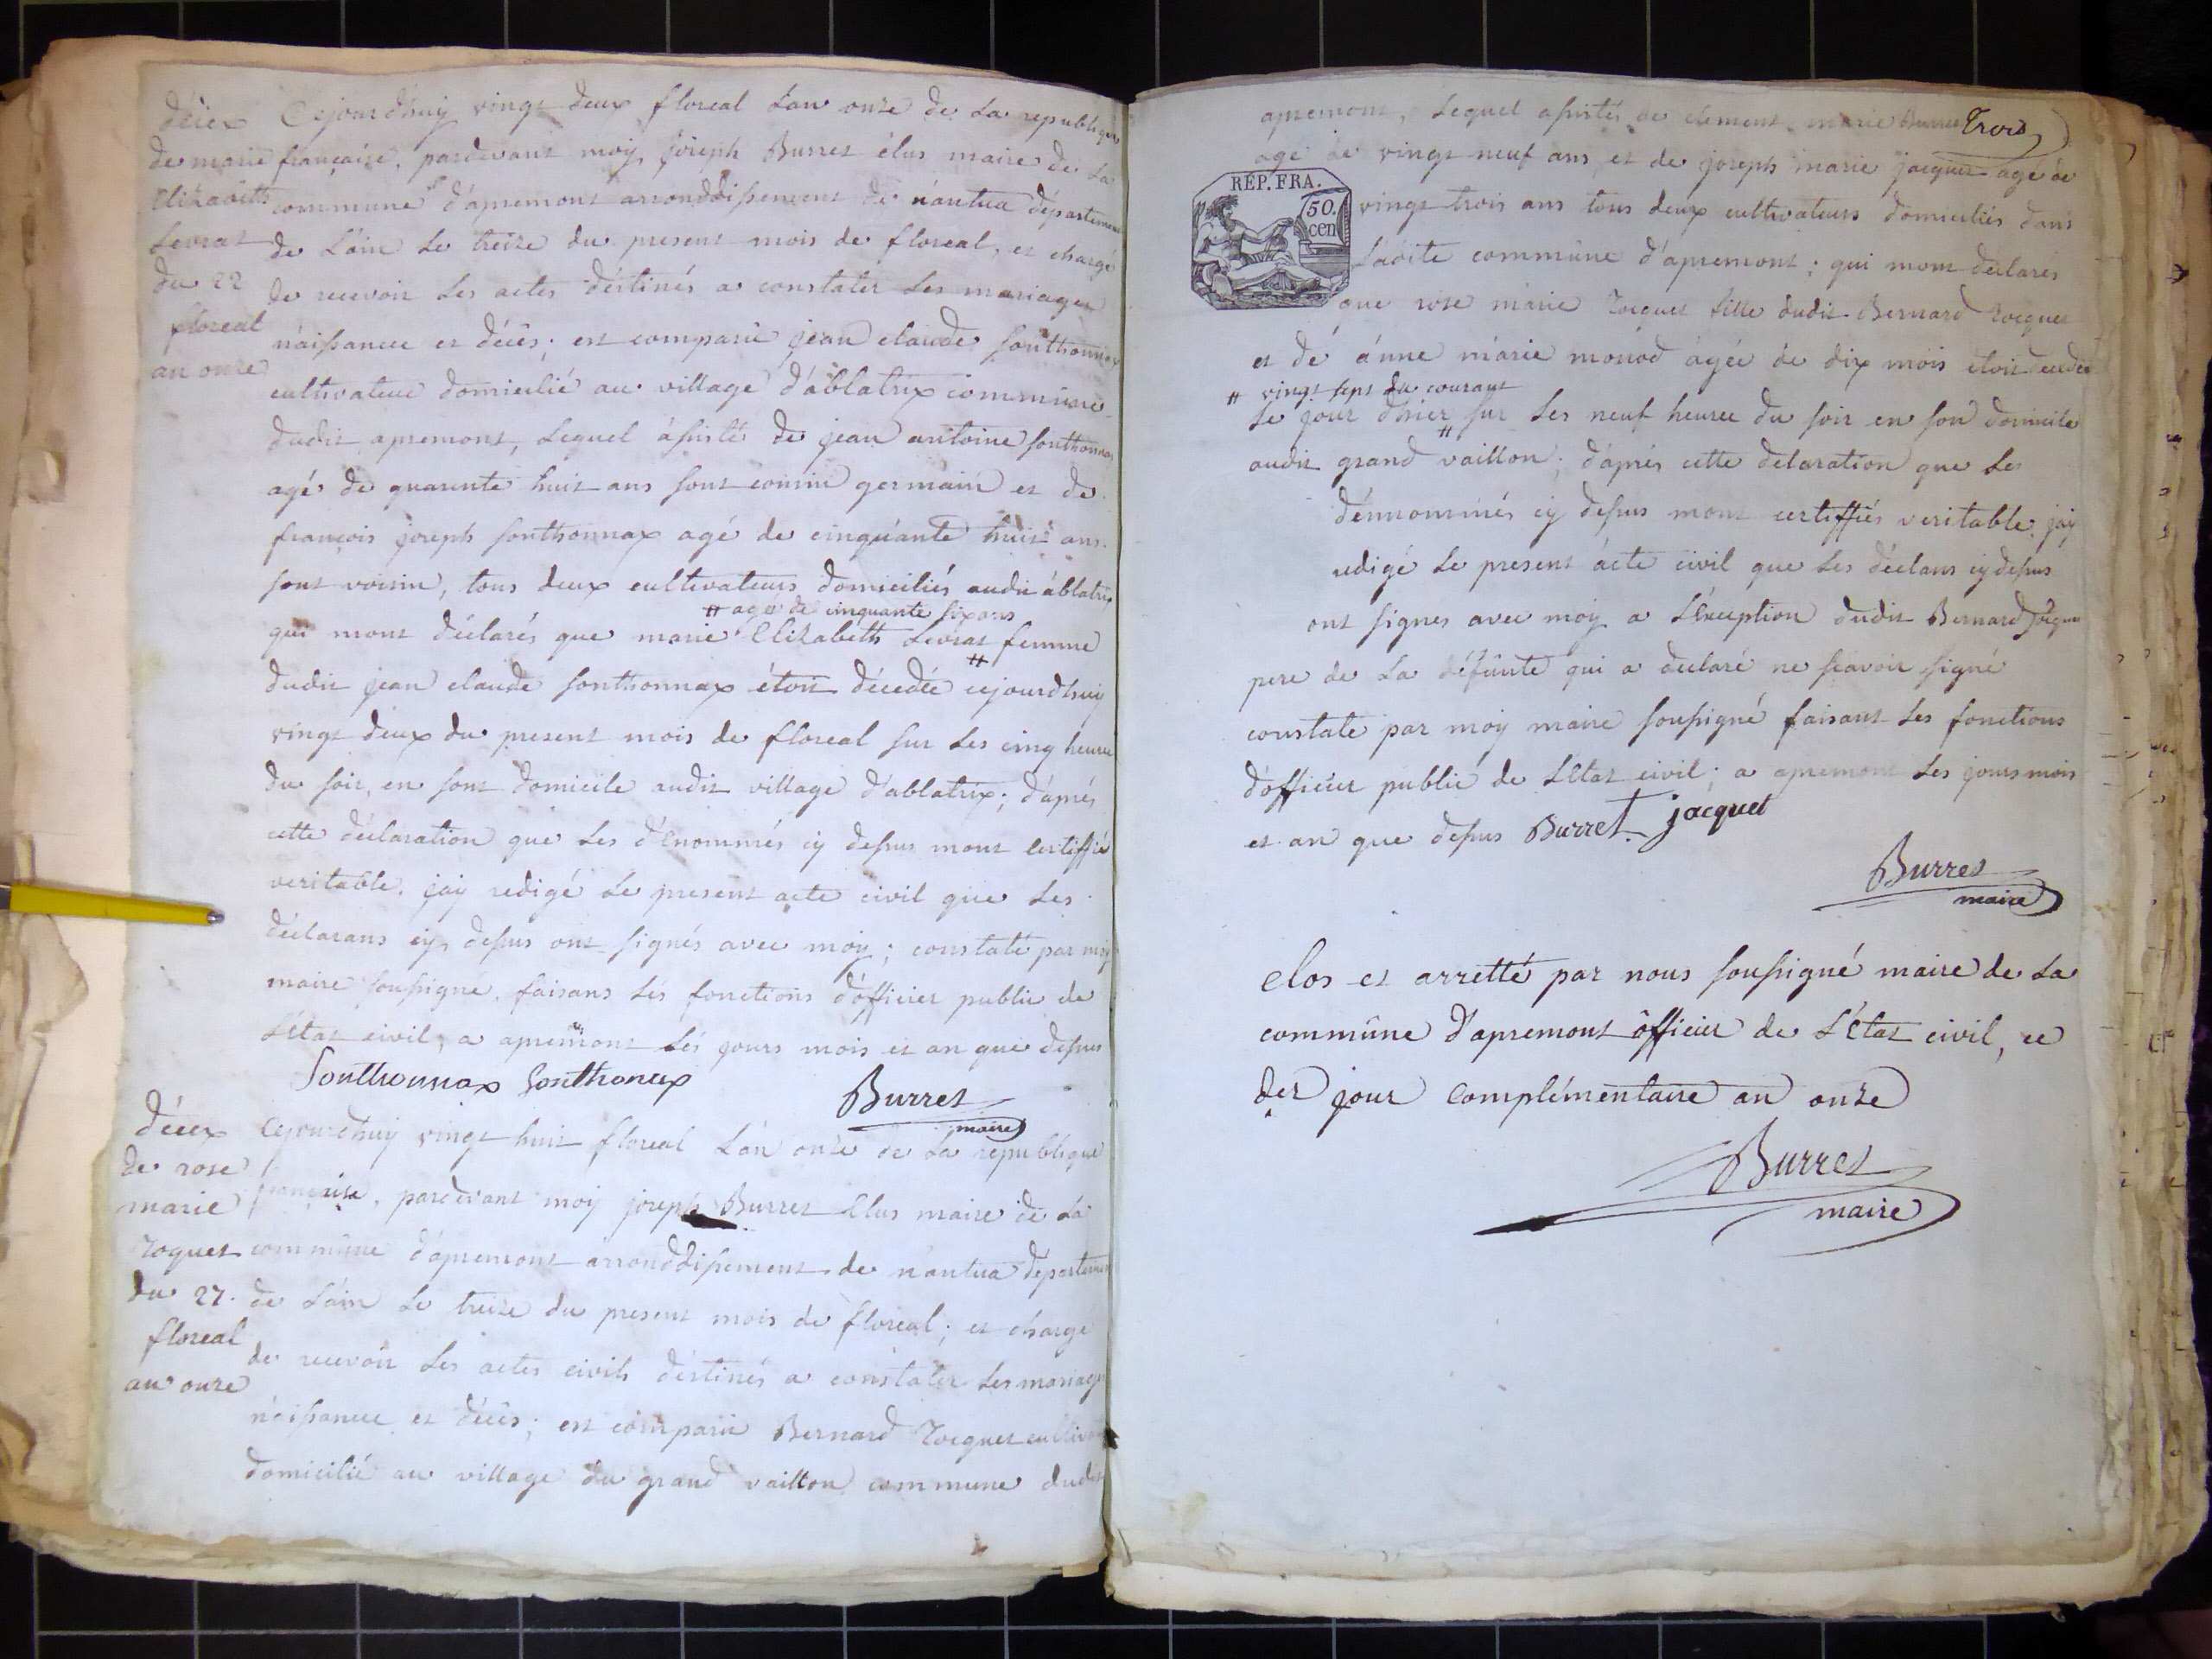 décex
de marie
Elizabeth
Levrat
du 22
floreal
an onze
Cejourdhuy vingt deux floreal Lan onze de La republique
française, pardevant moy joseph Burret élus maire de La
commune d'apremont arronddissement de nántua département
de L'ain Le treize du present mois de floreal, et chargé
de recevoir Les actes déstinés a constater Les mariages
náissance et décès; est comparu jean claude sonthonnax
cultivateur domicilié au village d'ablatrix commune
dudit apremont, Lequel ássisté de jean antoine sonthonnax
agé de quarante huit ans sont cousin germain et de
françois joseph sonthonnax agé de cinquante huit ans
sont voisin, tous deux cultivateurs domiciliés audit áblatrix
# agée de cinquante six ans
qui mont déclarés que marie Elizabeth Levrat # femme
dudit jean claude sonthonnax étoit décedée cejourdhuy
vingt deux du present mois de floreal sur Les cinq heures
du soir, en sont domicile audit village d'ablatrix; d'aprés
cette déclaration que Les d'Enommés cy dessus mont certiffié
veritable, jay redigé Le present acte civil que Les
déclarans cy dessus ont signés avec moy; constaté par moy
maire soussigné, faisans Lés fonctions d'officier public de
L'état civil; a apremont Lés jours mois et an que dessus
Sonthonnax Sonthonax
Burret
maire
décex
de rose
marie
Tocquet
du 27.
floreal
an onze
Cejourdhuy vingt huit floreal L'án onze de La république
française, pardevant moy joseph Burret Elus maire de La
commune d'apremont arronddissement de nántua département
de L'ain Le treize du present mois de floreal; et chargé
de recevoir Les actes civils déstinés a constater Les mariages
náissance et décès; est comparu Bernard Tocquet cultivateur
domicilié au village du grand vaillon commune dudit
Trois
apremont, Lequel assistés de clement marie Burret
agé de vingt neuf ans et de joseph marie jacquet agé de
REP. FRA.
50.
cen
vingt trois ans tous deux cultivateurs domiciliés dans
Ladite commune d'apremont; qui mont déclarés
que rose marie Tocquet fille dudit Bernard Tocquet
et dé ánne márie monod ágée de dix mois étoit décédée
# vingt sept du courant
Le jour d'hier # sur Les neuf heures du soir en son domicile
audit grand vaillon; d'aprés cette declaration que Les
dénnommés cy dessus mont certiffiés veritable, jay
redigé Le present ácte civil que Les déclans cy dessus
ont signes avec moy a L'éxception dudit Bernard Tocquet
pere de La défunte qui a declaré ne scavoir signé
constaté par moy maire soussigné faisant Les fonctions
d'officier public de L'Etat civil; a apremont Les jours mois
et an que dessus Burret. jacquet
Burret
maire
Clos et arretté par nous soussigné maire de La
commûne d'apremont ôfficier de L'Etat civil, ce
der jour Complémentaire an onze
Burret
maire